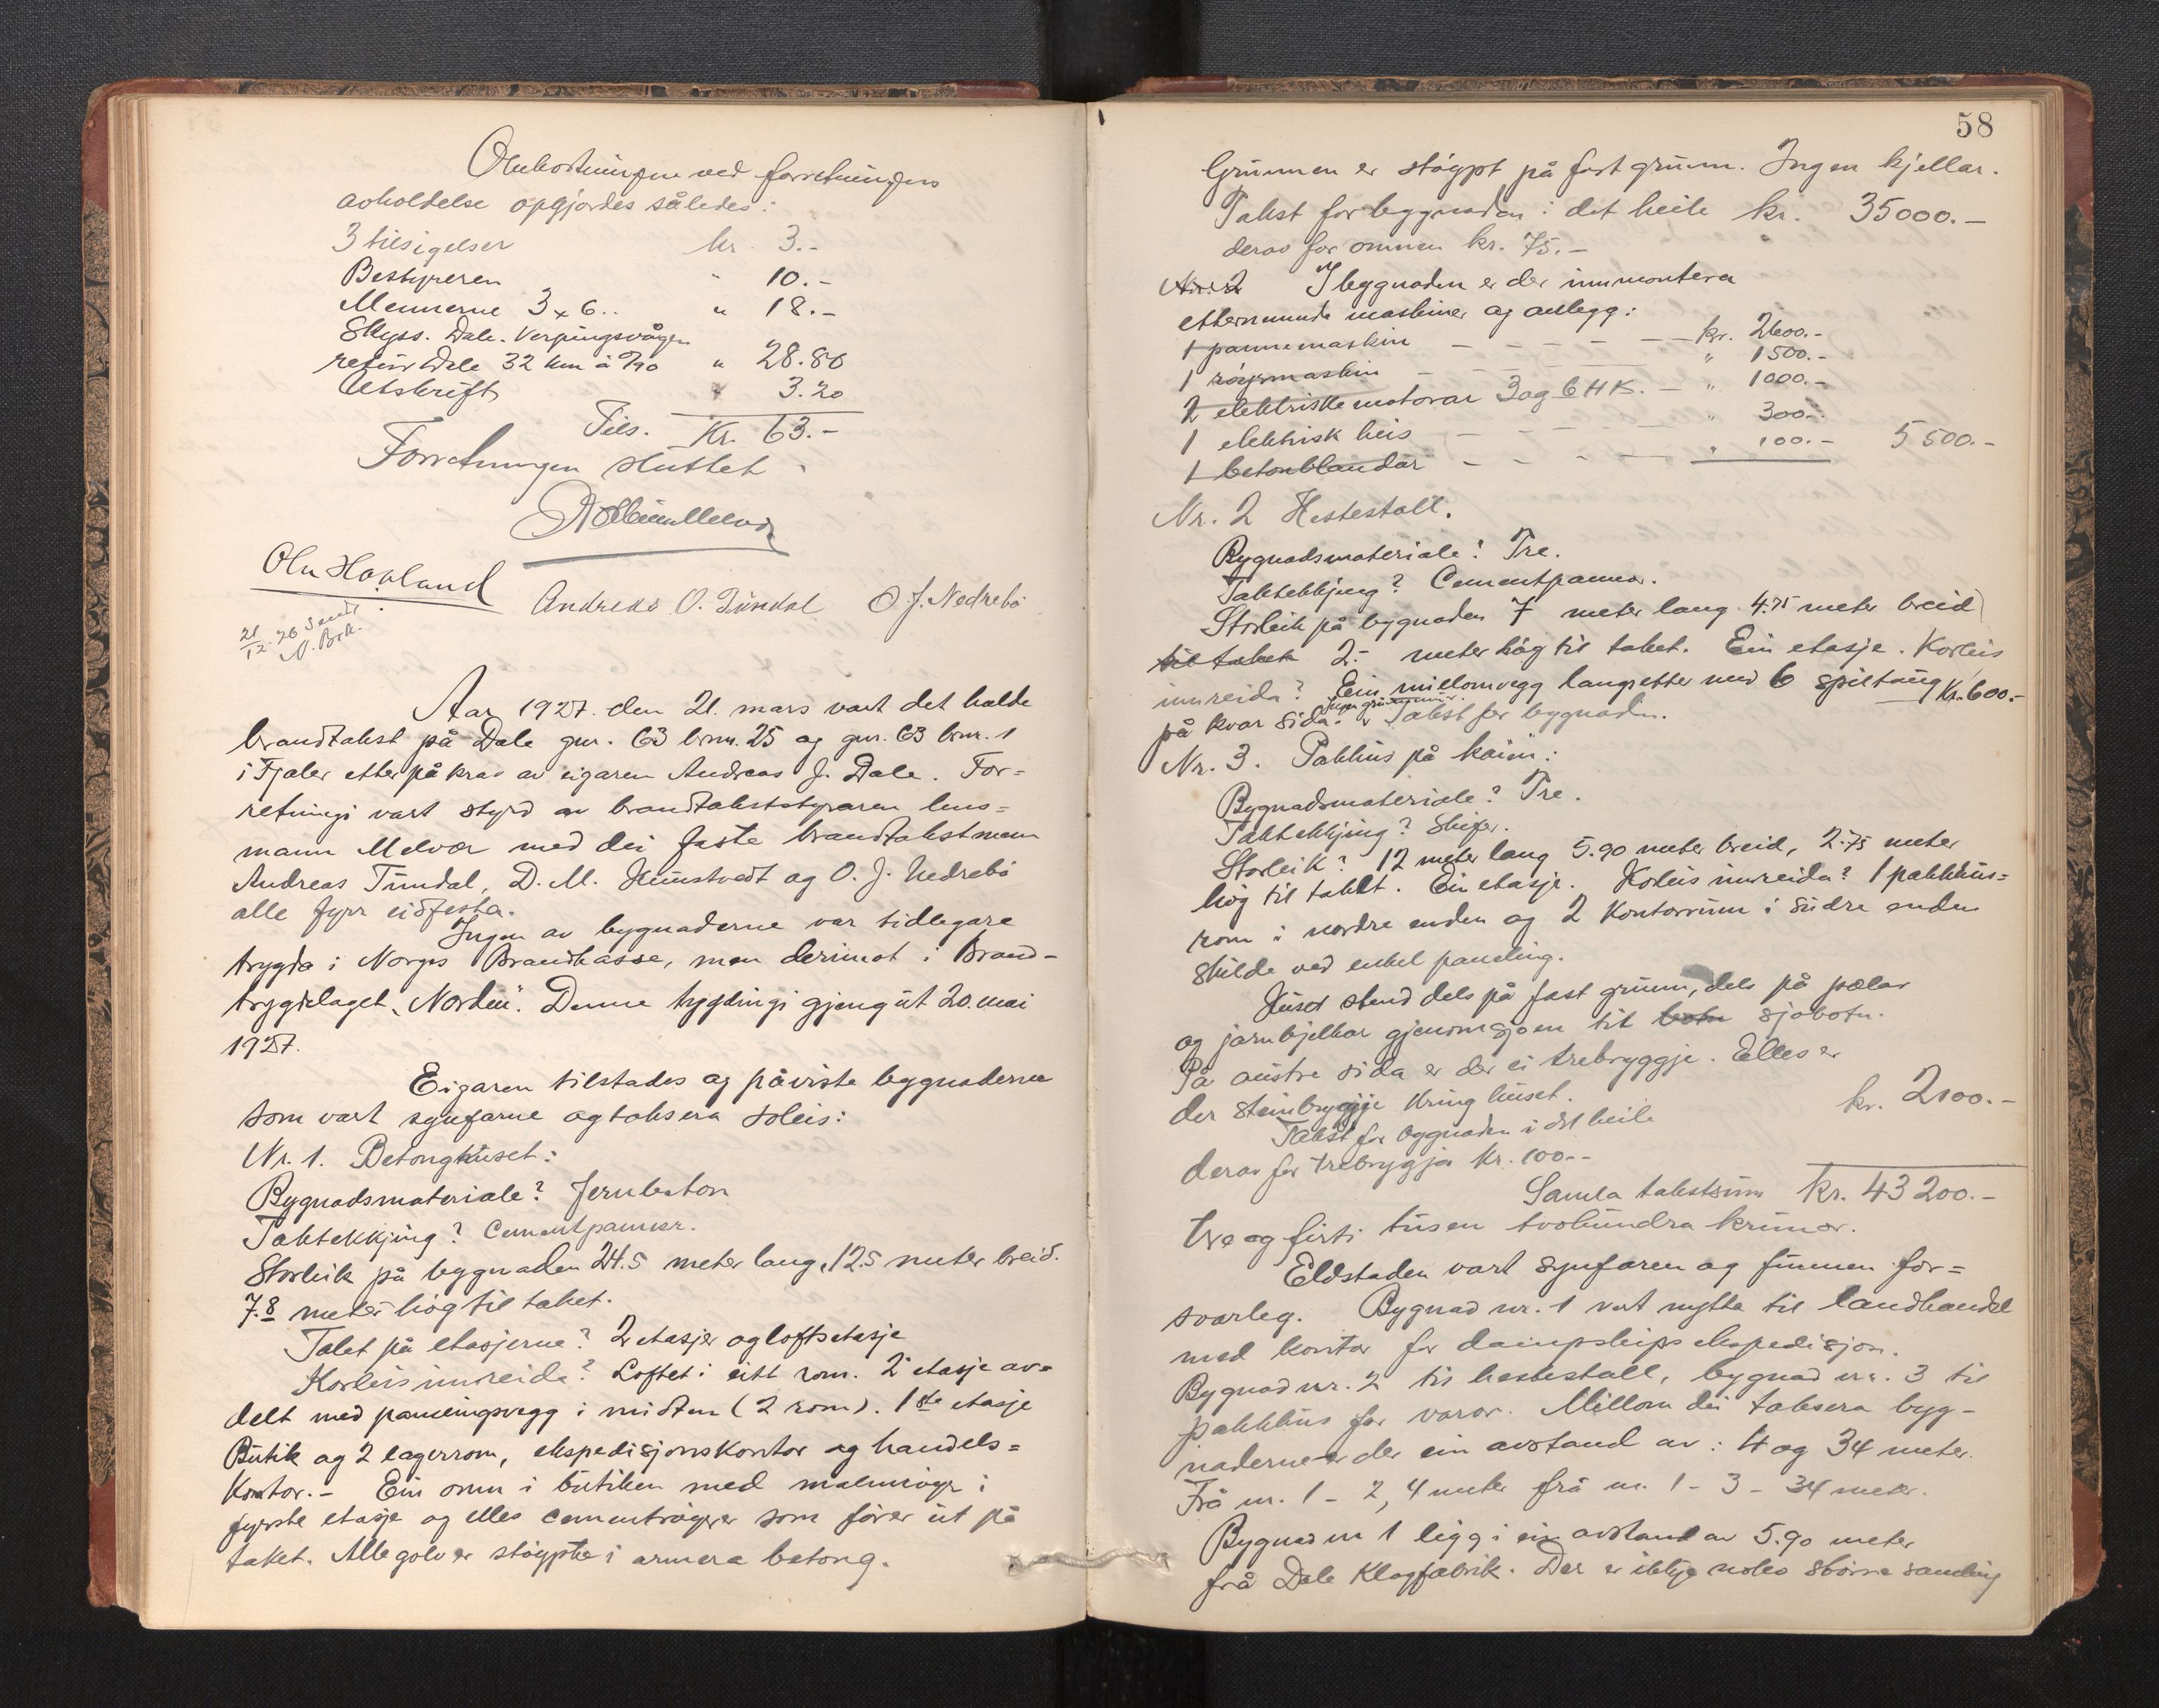 Omkostningene ved forretningens
avholdelse opgjordes således:
3 tilsigelser kr. 3.-
Bestyreren " 10.-
Mennerne 3 x 6.. " 18.-
Skyss. Dale - Verpingsvågen
retur Dale 32 km á 0/90 " 28.80
Utskrift " 3.20
Tils. Kr. 63.-
Forretningen sluttet.
Ola Hovland Andreas O. Tündal O. J. Nedrebö
21/12.26 Sendt
N. Brk.
Aar 1927. den 21. mars vart det halde
brandtakst på Dale gnr. 63 brnr. 25 og gnr. 63 bnr. 1
i Fjaler etter påkrav av eigaren Andreas J. Dale. For=
retningi vart styrd av brandtakststyraren lens=
mann Melvær med dei faste brandtakstmenn
Andreas Tündal, D. M. Hünstvedt og O. J. Nedrebö
alle fyrr eidfesta.
Ingen av bygnaderne var tidlegare
trygda i Norges Brandkasse, men derimot i Brand-
trygdelaget "Norden". Denne trygdingi gjeng út 20. mai
1927.
Eigaren tilstades og påviste bygnaderne
som vart synfarne og taksera soleis:
Nr. 1. Betonghúset:
Bygnadsmateriale? Jernbeton
Taktekkjing? Cementpannor.
Storleik på bygnaden 24.5 meter lang, 12.5 meter breid.
7.8 meter høg til taket.
Talet på etasjerne? 2 etasjer og loftsetasje
Korleis innreida? Loftet i eitt rom. 2 etasje av=
delt med panelingsvegg i midten (2 rom). 1ste etasje
Butik og 2 lagerrom, ekspedisjonskontor og handels=
kontor.- Ein omn i butiken med malmrøyr i
fyrste etasje og elles cementrøyrer som fører út på
taket. Alle golv er støypte i armera betong.
58
Grunnen er støypt på fast grunn. Ingen kjellar.
Takst for bygnaden i det heile kr. 35000.-
derav for omnen kr. 75.-
Nr. 2 I bygnaden er der innmontera
etternemnde maskiner og anlegg:
1 pannemaskin - - - - - kr. 2600.-
1 røyrmaskin - - - - - " 1500.-
2 elektriske motorar 3 og 6 HK. - " 1000.-
1 elektrisk heis - - - - " 300.-
1 betonblandar - - - - " 100.- 5500.-
Nr. 2 Hestestall.
Bygnadsmateriale? Tre.
Taktekkjing? Cementpannor.
Storleik på bygnaden 7 meter lang 4.75 meter breid
til taket 2.- meter høg til taket. Ein etasje. Korleis
innreida? Ein millomvegg langsetter med 6 spiltaug
på kvar sida. Ingen grunnmur. Takst for bygnaden. Kr. 600.-
Nr. 3. Pakhús på kaien:
Bygnadsmateriale? Tre.
Taktekkjing? Skifer.
Storleik? 12 meter lang 5.90 meter breid, 2.75 meter
høg til taket. Ein etasje. Korleis innreida? 1 pakkhús=
rom i nordre enden og 2 kontorrúm i sudre enden
skilde ved enkel paneling.
Húset stend dels på fast grunn, dels på pælar
og jarnbjelkar gjenom sjøen til botn sjøbotn.
På austre sida er der ei trebryggje. Elles er
der steinbryggje kring húset.
Takst for bygnaden i det heile kr. 2100.-
derav for trebryggja kr. 100.-
Samla takstsum kr. 43200.-
tre og firti tusen tvohundra krunor.
Eldstaden vart synfaren og funnen for=
svarleg. Bygnad nr. 1 vert nytta til landhandel
med kontor for dampskips ekspedisjon.
Bygnad nr. 2 til hestestall, bygnad nr. 3 til
pakkhús for varor. Millom dei taksera byg-
naderne er der ein avstand av: 4 og 34 meter.
Frå nr. 1 - 2, 4 meter frå nr. 1 - 3 - 34 meter.
Bygnad nr 1 ligg i ein avstand av 5.90 meter
frå Dale Klogfabrik. Der er ikkje noko større samling